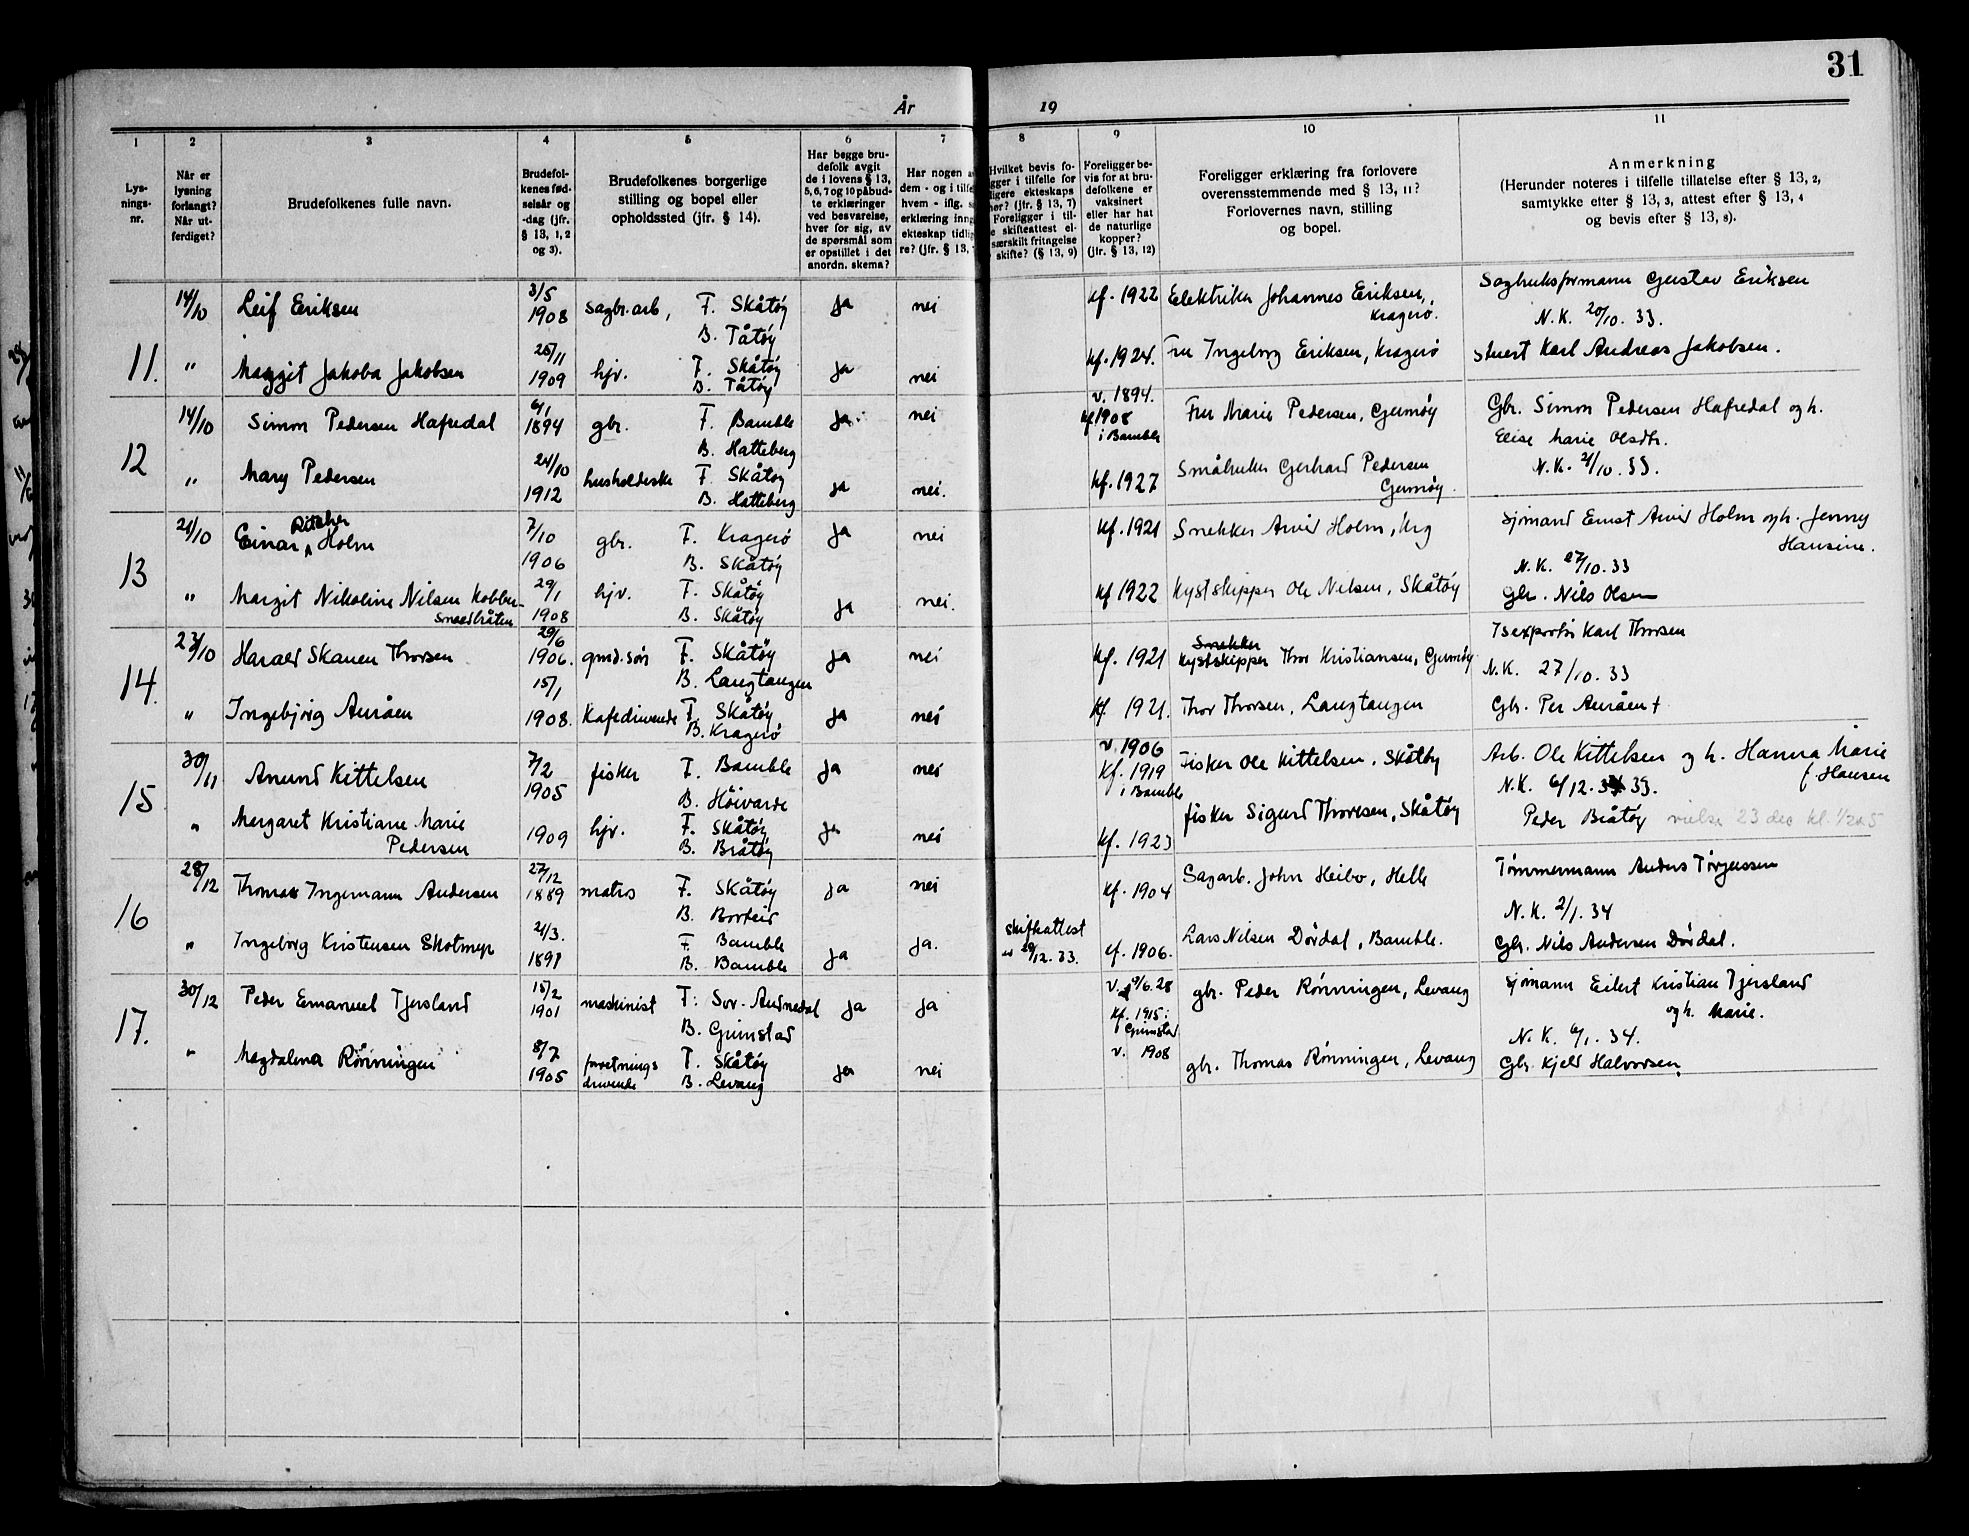 31
År 19
1 2 3 4 5 6 7 8 9 10 11
Lys-
nings-
nr.
Når er
lysning
forlangt?
Når ut-
ferdiget?
Brudefolkenes fulle navn.
Brudefol-
kenes fød-
selsår og
-dag (jfr.
§ 13, 1, 2
og 3).
Brudefolkenes borgerlige
stilling og bopel eller
opholdssted (jfr. § 14).
Har begge bru-
defolk avgit
de i lovens § 13,
5, 6, 7 og 10 påbud-
te erklæringer
ved besvarelse,
hver for sig, av
de spørsmål som
er opstillet i det
anordn. skema?
Har nogen a
dem - og i tilfe
hvem - iflg. s
erklæring inng
ekteskap tidlig
re? (jfr. § 13,
Hvilket bevis fo-
gger i tilfelle for
ligere ekteskaps
hør? (jfr. § 13, 7)
Foreligger i til-
e skifteattest el-
særskilt fritagelse
skifte? (§ 13, 9)
Foreligger be-
vis for at bru-
defolkene er
vaksinert
eller har hat
de naturlige
kopper?
(jfr. § 13, 12)
Foreligger erklæring fra forlovere
overensstemmende med § 13, 11?
Forlovernes navn, stilling
og bopel.
Anmerkning
(Herunder noteres i tilfelle tillatelse efter § 13, 2,
samtykke efter § 13, 3, attest efter § 13, 4
og bevis efter § 13, 8).
11. 14/10 Leif Eriksen 3/5 1908 sagbr.arb, F. Skåtøy ja nei kf. 1922 Elektriker Johannes Eriksen, Kragerø. Sagbruksformann Gustav Eriksen
B. Tåtøy N.K. 20/10. 33.
" Margit Jakoba Jakobsen 25/11 1909 hjv. F. Skåtøy ja nei kf. 1924. Fru Ingeborg Eriksen, Kragerø stuert Karl Andreas Jakobsen.
B. Tåtøy
12 14/10 Simon Pedersen Hafredal 6/1 1894 gbr. F. Bamble ja nei v. 1894. kf 1908 i Bamble Fru Marie Pedersen, Gumøy Gbr. Simon Pedersen Hafredal og h.
B. Hatteberg Elise Marie Olsdtr.
" Mary Pedersen 24/10 1912 husholderske F. Skåtøy ja nei. kf. 1927 Småbruker Gerhard Pedersen Gumøy. N.K. 21/10. 33.
B. Hatteberg
13 21/10 Einar Holm 7/10 1906 gbr. F. Kragerø ja nei kf. 1921 Snekker Arvid Holm, Krg Sjømand Ernst Arvid Holm og h. Jenny Hansine.
B. Skåtøy N.K. 27/10. 33
" Margit Nikoline Nilsen Kobber- 29/1 1908 hjv. F. Skåtøy ja nei. kf 1922 Kystskipper Ole Nilsen, Skåtøy Gbr. Nils Olsen
smedbråten B. Skåtøy
14. 23/10 Harald Skauen Thorsen 29/6 1906. gmd.søn F. Skåtøy ja nei kf. 1921 Snekker Kystskipper Thor Kristiansen, Gumøy Isexportør Karl Thorsen
B. Langtangen N.K. 27/10. 33
" Ingebjørg Auråen 15/1 1908. Kafedrivende F. Skåtøy ja nei kf. 1921. Thor Thorsen, Langtangen Gbr. Per Auråen +
B. Kragerø
15 30/11 Anund Kittelsen 7/2 1905 fisker F. Bamble ja nei v. 1906 Kf. 1919 i Bamble Fisker Ole Kittelsen, Skåtøy Arb. Ole Kittelsen og h. Hanna Marie f. Hansen
B. Høivarde N.K. 6/12. 33.
" Margaret Kristiane Marie 1909 hjv. F. Skåtøy ja nei kf. 1923 fisker Sigurd Thoresen, Skåtøy Peder Bråtøy vielse 23 dec kl. 1/2 5
Pedersen B. Bråtøy
16 28/12 Thomas Ingemann Andersen 27/12 1889 matros F. Skåtøy ja nei kf. 1904 Sagarb. John Heibø, Helle Tømmermann Anders Tørjussen
B. Borteid N.K. 2/1. 34
" Ingeborg Kristensen Skotmyr 21/3. 1891 F. Bamble ja ja. skifteattest 29/12. 33. kf. 1906. Lars Nilsen Dørdal, Bamble. Gbr. Nils Andersen Dørdal.
B. Bamble
17. 30/12 Peder Emanuel Tjersland 15/2 1901 maskinist F: Sør-Audnedal ja ja v. 9/6. 28 kf. 1915 i Grimstad gbr. Peder Rønningen, Levang Sjømann Eilert Kristian Tjersland
B. Grimstad og h. Marie.
N.K. 6/1. 34.
" Magdalena Rønningen 8/7 1905 forretnings drivende F. Skåtøy ja nei v. 1908 gbr. Thomas Rønningen, Levang Gbr. Kjeld Halvorsen.
B. Levang